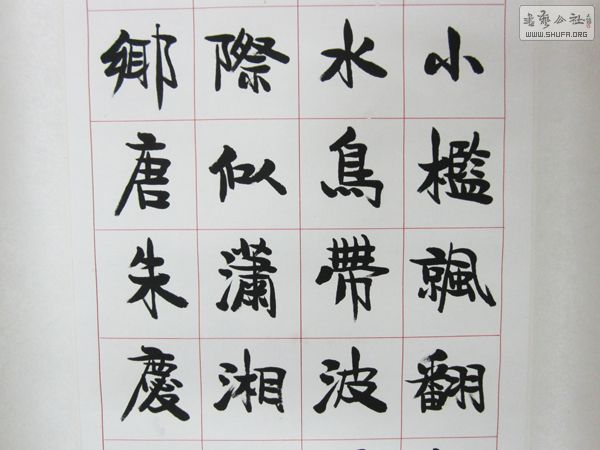 小檻翻
水鳥帶波
際似瀟湘
鄉唐朱慶
书艺公社
WWW.SHUFA.ORG